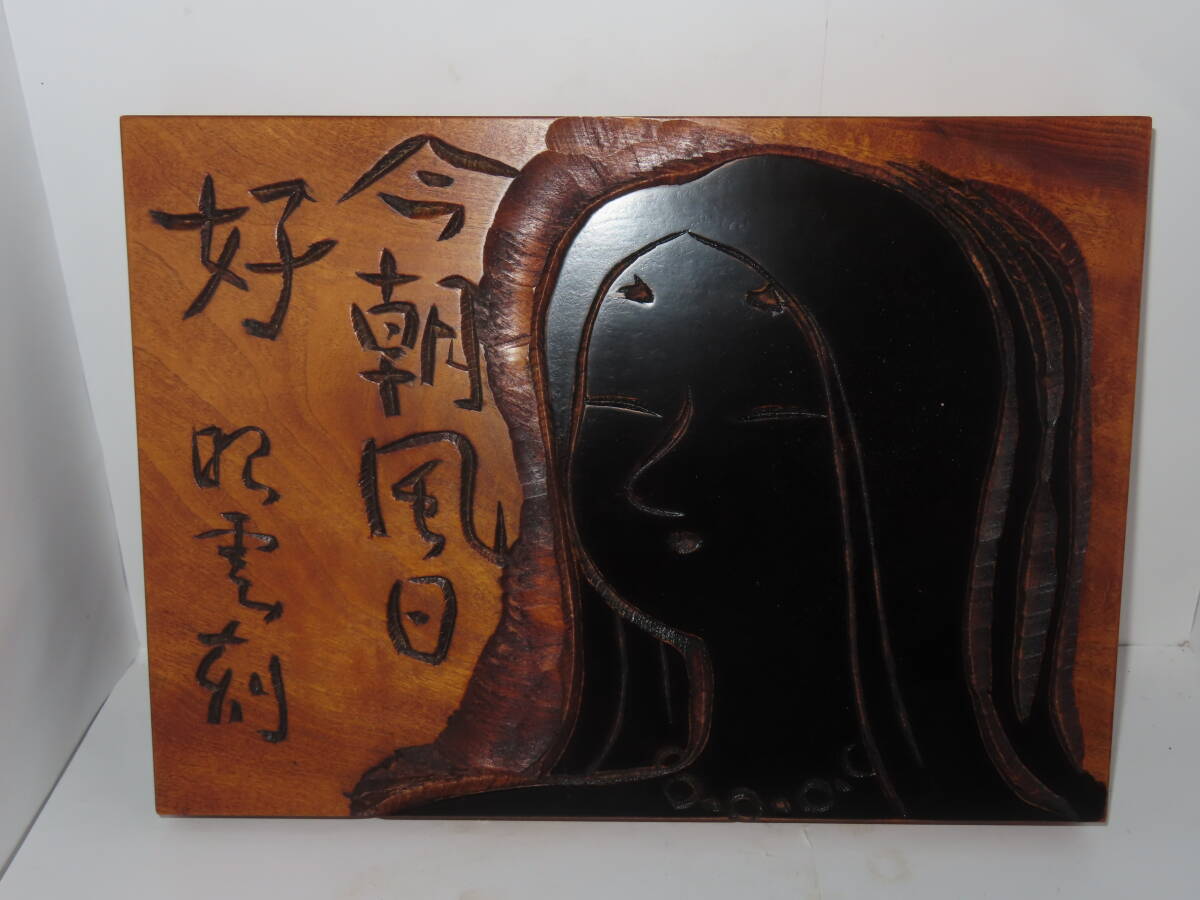 今朝風日
好
昭雲刻